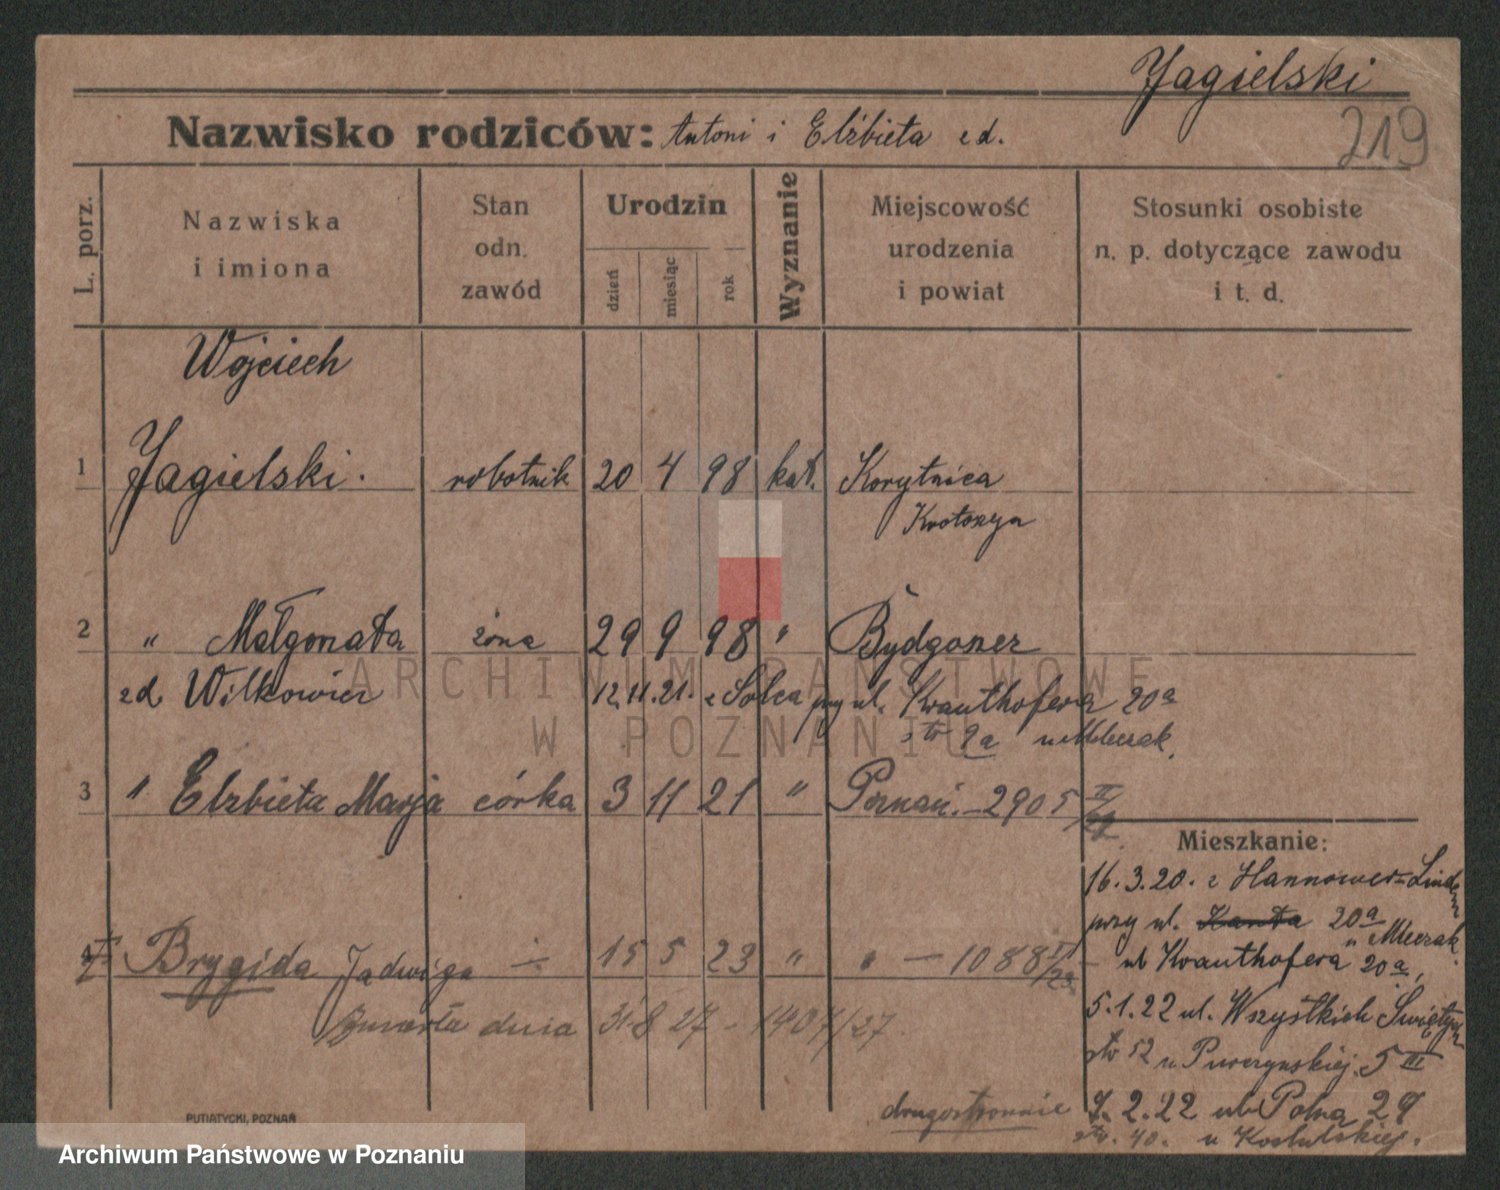 Jagielski
219
Nazwisko rodziców: Antoni i Elżbieta zd.
L. porz.
Nazwiska i imiona
Stan odn. zawód
Urodzin
dzień
miesiąc
rok
Wyznanie
Miejscowość urodzenia i powiat
Stosunki osobiste n. p. dotyczące zawodu i t. d.
Wojciech
1 Jagielski. robotnik 20 4 98 kat. Korytnica
Krotoszyn
2 " Małgorzata żona 29 9 98 " Bydgoszcz
zd. Wilkowicz 12.11.21. z Solca przy ul. Krauthofera 20a
9a
3 " Elżbieta Marja córka 3 11 21 " Poznań. - 2905 II/22
Mieszkanie:
16.3.20. z Hannower-Linden
przy ul. Kanta 20a
ul Krauthofera 20a,
4 Brygida Jadwiga 15 5 23 " " - 1088 /23
5.1.22 ul. Wszystkich Świętych
zmarła dnia 31 8 27 - 1407/27
5 III
drugostronnie
7.2.22 ul. Polna 29
40. u
PUTIATYCKI, POZNAŃ
ARCHIWUM PAŃSTWOWE
W POZNANIU
Archiwum Państwowe w Poznaniu